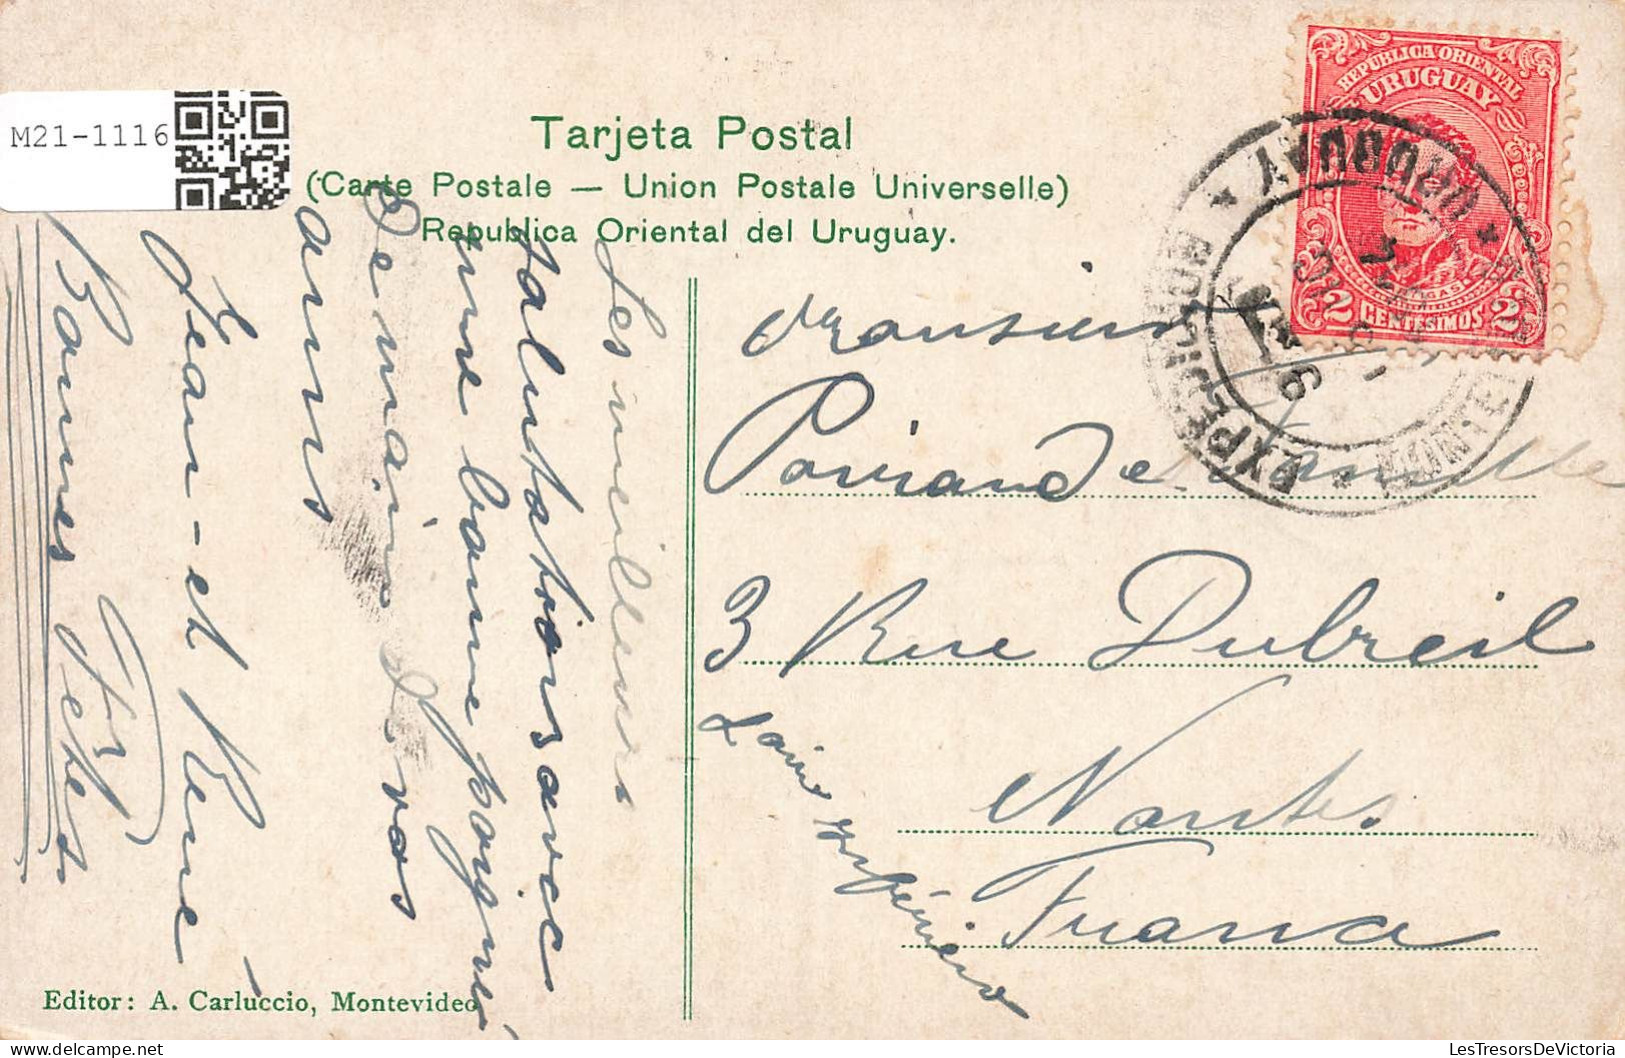 M21-1116
Tarjeta Postal
(Carte Postale — Union Postale Universelle)
Republica Oriental del Uruguay.
REPUBLICA ORIENTAL
URUGUAY
2 CENTÉSIMOS 2
URUGUAY
Les meilleures
salutations avec
une bonne poignée
de main de vos
amis
Jean et René
Bonnes fêtes
Monsieur
et famille
3 Rue Dubreil
Nantes
Loire Inférieure
France
Editor: A. Carluccio, Montevideo
LesTresorsDeVictoria